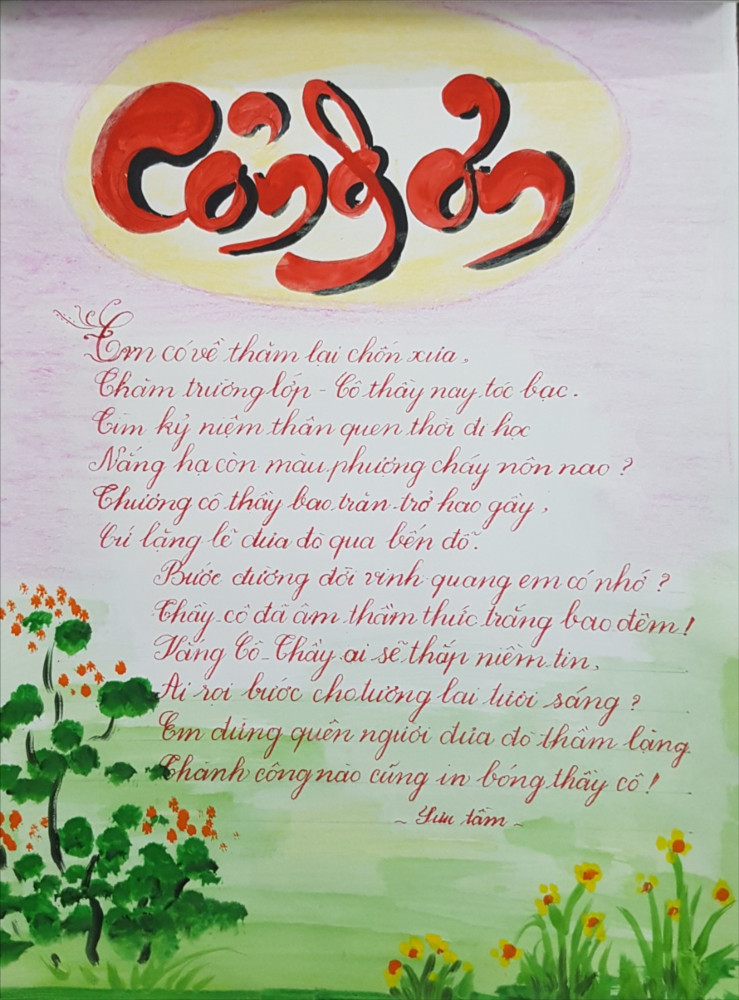 Công ơn
Em có về thăm lại chốn xưa,
Thăm trường lớp - Cô thầy nay tóc bạc.
Tìm kỷ niệm thân quen thời đi học
Nắng hạ còn màu phượng cháy nôn nao ?
Thương cô thầy bao trăn trở hao gầy,
Cứ lặng lẽ đưa đò qua bến đỗ.
Bước đường đời vinh quang em có nhớ ?
Thầy cô đã âm thầm thức trắng bao đêm !
Vắng Cô - Thầy ai sẽ thắp niềm tin,
Ai rọi bước cho tương lai tươi sáng ?
Em đừng quên người đưa đò thầm lặng
Thành công nào cũng in bóng thầy cô !
~ Sưu tầm ~